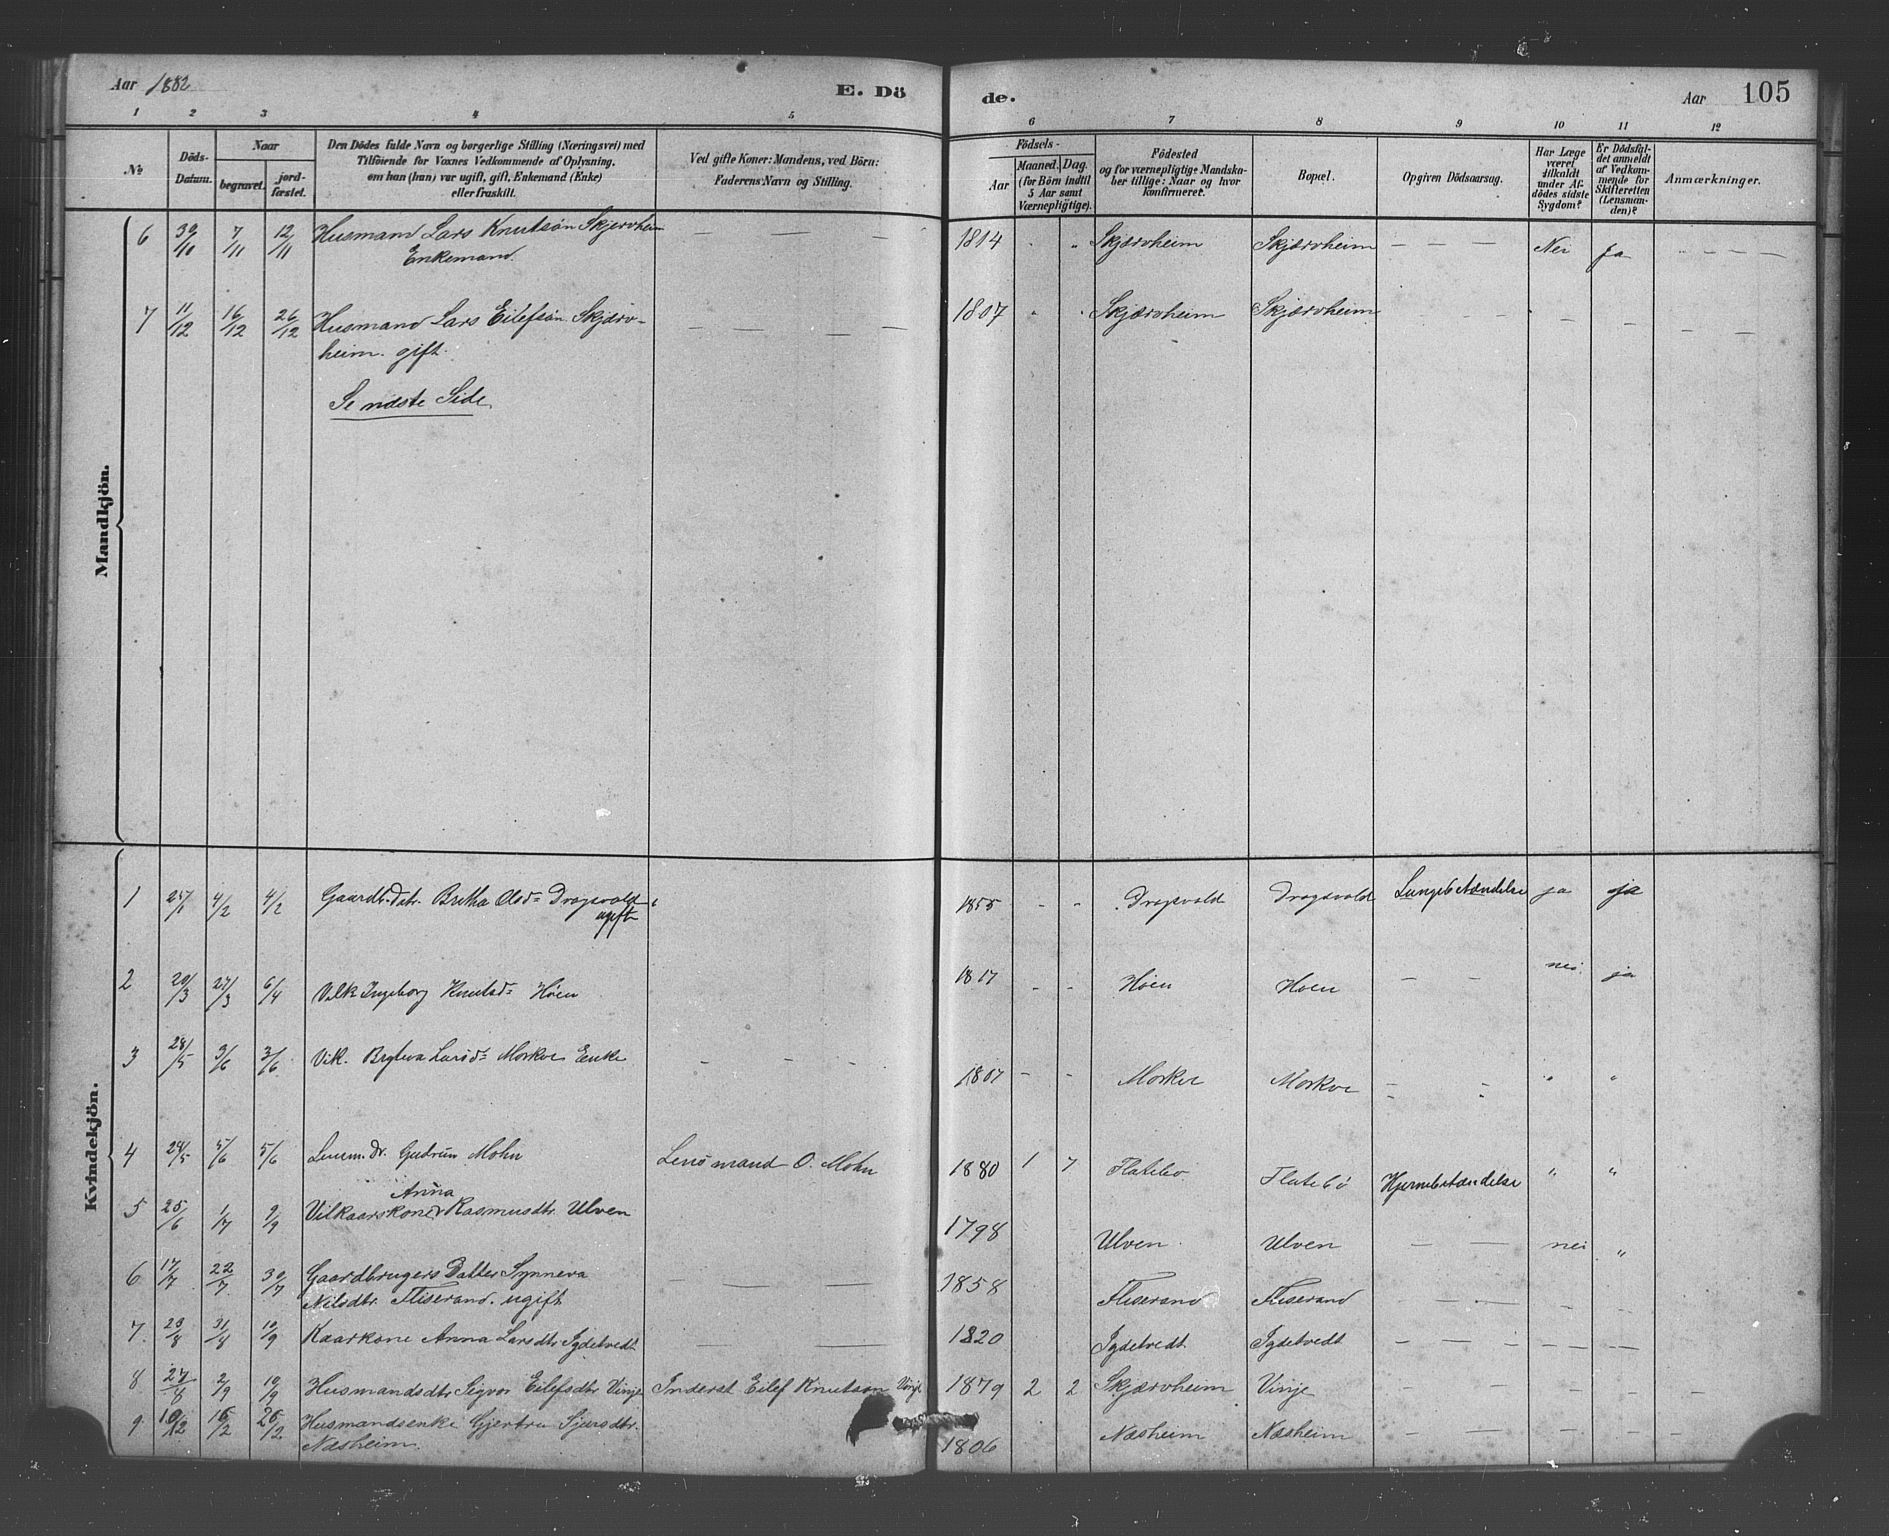 Aar 1882 E. Dö de. Aar 105
1 2 3 4 5 6 7 8 9 10 11 12
No Döds-Datum. Naar begravet. jordfæstet. Den Dödes fulde Navn og borgerlige Stilling (Næringsvei) med Tilföiende for Voxnes Vedkommende af Oplysning, om han (hun) var ugift, gift, Enkemand (Enke) eller fraskilt. Ved gifte Koner: Mandens, ved Börn: Faderens Navn og Stilling. Födsels- Aar Maaned. Dag. (for Börn indtil 5 Aar samt Værnepligtige). Födested og for værnepligtige Mandskaber tillige: Naar og hvor konfirmeret. Bopæl. Opgiven Dödsaarsag. Har Læge været tilkaldt under Afdödes sidste Sygdom? Er Dödsfaldet anmeldt af Vedkommende for Skifteretten (Lensmanden)? Anmærkninger.
Mandkjön.
6 30/10 7/11 12/11 Husmand Lars Knutsøn Skjervheim — — — 1814 Skjærvheim Skjærvheim — — — Nei Ja — — — —
Enkemand.
7 11/12 16/12 26/12 Husmand Lars Eilefsøn Skjærv- — — — — 1807 Skjærvheim Skjærvheim — — — — — —
heim. gift.
Se næste Side.
Kvindekjön.
1 25/1 4/2 4/2 Gaardb. Datr. Britha Olsd= Dragsvold 1855 - - Dragsvold Dragsvold Lungebetændelse ja ja
ugift
2 20/3 27/3 6/4 Vilk Ingeborg Knutsd= Höen 1817 - - Höen Höen — — nei. ja
3 28/5 3/6 3/6 Vik. Bryteva Larsd= Morkve Enke - - - 1807 - - Morkve Morkve - - " "
4 29/5 5/6 5/6 Lensm. Dr. Gudrun Mohn Lensmand O. Mohn 1880 1 7 Flatebö Flatebö Hjernebetændelse " "
5 25/6 1/7 9/9 Vilkaarskone Anna Rasmusdtr. Ulven 1798 Ulven. Ulven — — nei "
6 17/7 22/7 30/7 Gaardbrugers Datter Synneva — — — 1858 Fliserand Fliserand — — — —
Nilsdtr. Fliserand. ugift
7 23/8 31/8 10/9 Kaarkone Anna Larsdtr Sydetvedt — — 1820 Sydetvedt Sydetvedt — — — — —
8 27/8 2/9 10/9 Husmandsdtr Sigvor Eilefsdtr Vinje Inderst Eilef Knutson Vinje 1879 2 2 Skjærvheim Vinje — — — — — —
9 10/12 16/12 26/12 Husmandsenke Gjertru Sjursdtr. 1806 Næsheim Næsheim — — — — —
Næsheim.